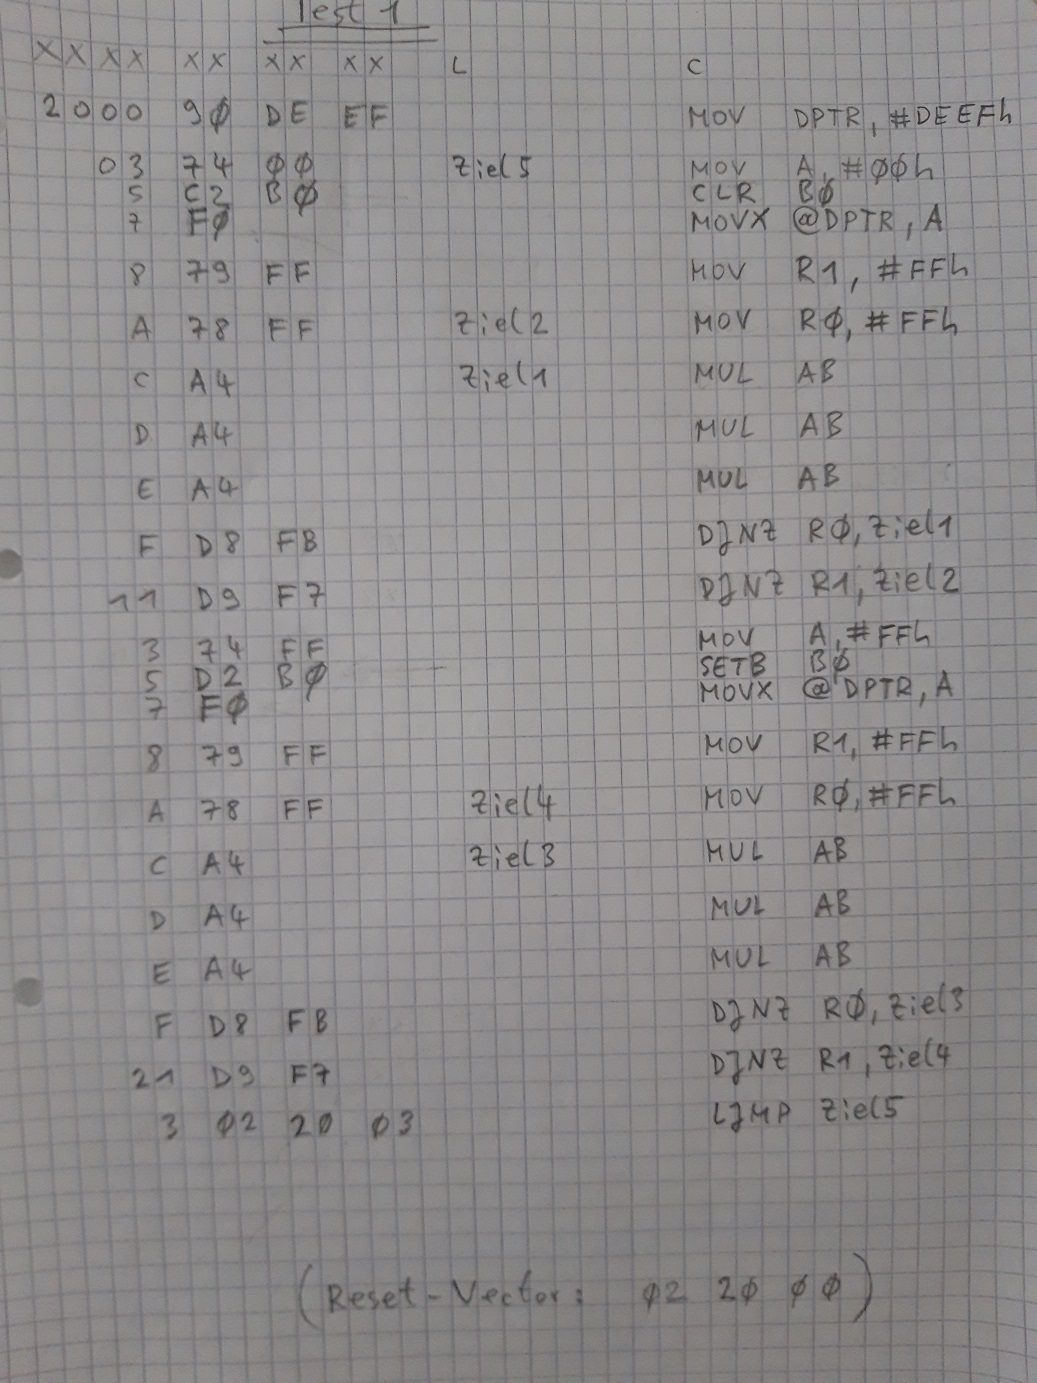 Test 1
XXXX XX XX XX L C
2000 9Ø DE EF MOV DPTR, #DEEFh
03 74 ØØ Ziel5 MOV A, #ØØh
5 C2 BØ CLR BØ
7 FØ MOVX @DPTR, A
8 79 FF MOV R1, #FFh
A 78 FF Ziel2 MOV RØ, #FFh
C A4 Ziel1 MUL AB
D A4 MUL AB
E A4 MUL AB
F D8 FB DJNZ RØ, Ziel1
11 D9 F7 DJNZ R1, Ziel2
3 74 FF MOV A, #FFh
5 D2 BØ SETB BØ
7 FØ MOVX @DPTR, A
8 79 FF MOV R1, #FFh
A 78 FF Ziel4 MOV RØ, #FFh
C A4 Ziel3 MUL AB
D A4 MUL AB
E A4 MUL AB
F D8 FB DJNZ RØ, Ziel3
21 D9 F7 DJNZ R1, Ziel4
3 Ø2 2Ø Ø3 LJMP Ziel5
(Reset-Vector: Ø2 2Ø ØØ)